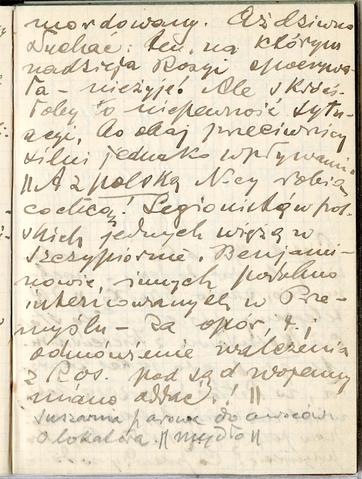 mordowany. Aż dziwno
słuchać: ten, na którym
nadzieja Rosyi spoczywa-
ła – nie żyje! Ale skreś-
liłoby to niepewność sytu-
acyi, bo obaj przeciwnicy
silni jednako wpływami
|| A z polską N-cy robią
co chcą! Legionistów pol-
skich jednych więżą w
Szczypiornie, Benjami-
nowie, innych podobno
internowanych w Prze-
myślu – za opór, t. j.
odmówienie walczenia
z Ros. pod sąd wojenny
miano oddać! ||
suszarnia parowa do owoców
|| mydło ||